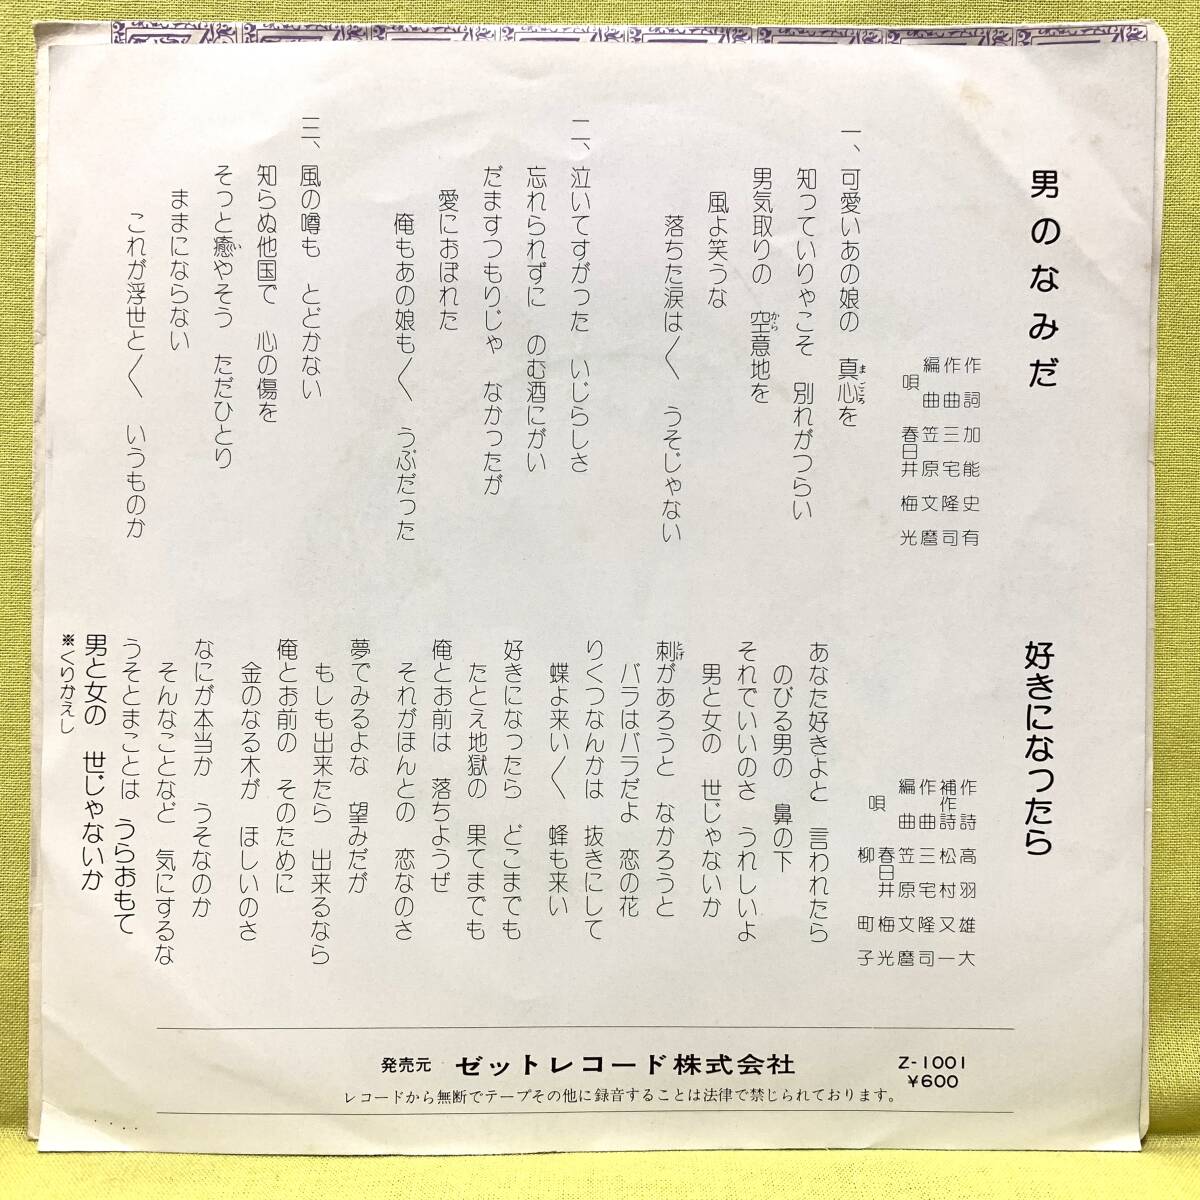 男のなみだ
作詞 加能史有
作曲 三宅隆司
編曲 笠原文麿
唄 春日井梅光
一、可愛いあの娘の 真心を
まごころ
知っていりゃこそ 別れがつらい
男気取りの 空意地を
から
風よ笑うな
落ちた涙は〱 うそじゃない
二、泣いてすがった いじらしさ
忘れられずに のむ酒にがい
だますつもりじゃ なかったが
愛におぼれた
俺もあの娘も〱 うぶだった
三、風の噂も とどかない
知らぬ他国で 心の傷を
そっと癒やそう ただひとり
い
ままにならない
これが浮世と〱 いうものか
好きになったら
作詩 高羽雄大
補作詩 松村又一
作曲 三宅隆司
編曲 笠原文麿
唄 春日井梅光
柳町子
あなた好きよと 言われたら
のびる男の 鼻の下
それでいいのさ うれしいよ
男と女の 世じゃないか
刺があろうと なかろうと
とげ
バラはバラだよ 恋の花
りくつなんかは 抜きにして
蝶よ来い〱 蜂も来い
好きになったら どこまでも
たとえ地獄の 果てまでも
俺とお前は 落ちようぜ
それがほんとの 恋なのさ
夢でみるよな 望みだが
もしも出来たら 出来るなら
俺とお前の そのために
金のなる木が ほしいのさ
なにが本当か うそなのか
そんなことなど 気にするな
うそとまことは うらおもて
男と女の 世じゃないか
※くりかえし
発売元 ゼットレコード株式会社
Z-1001
¥600
レコードから無断でテープその他に録音することは法律で禁じられております。